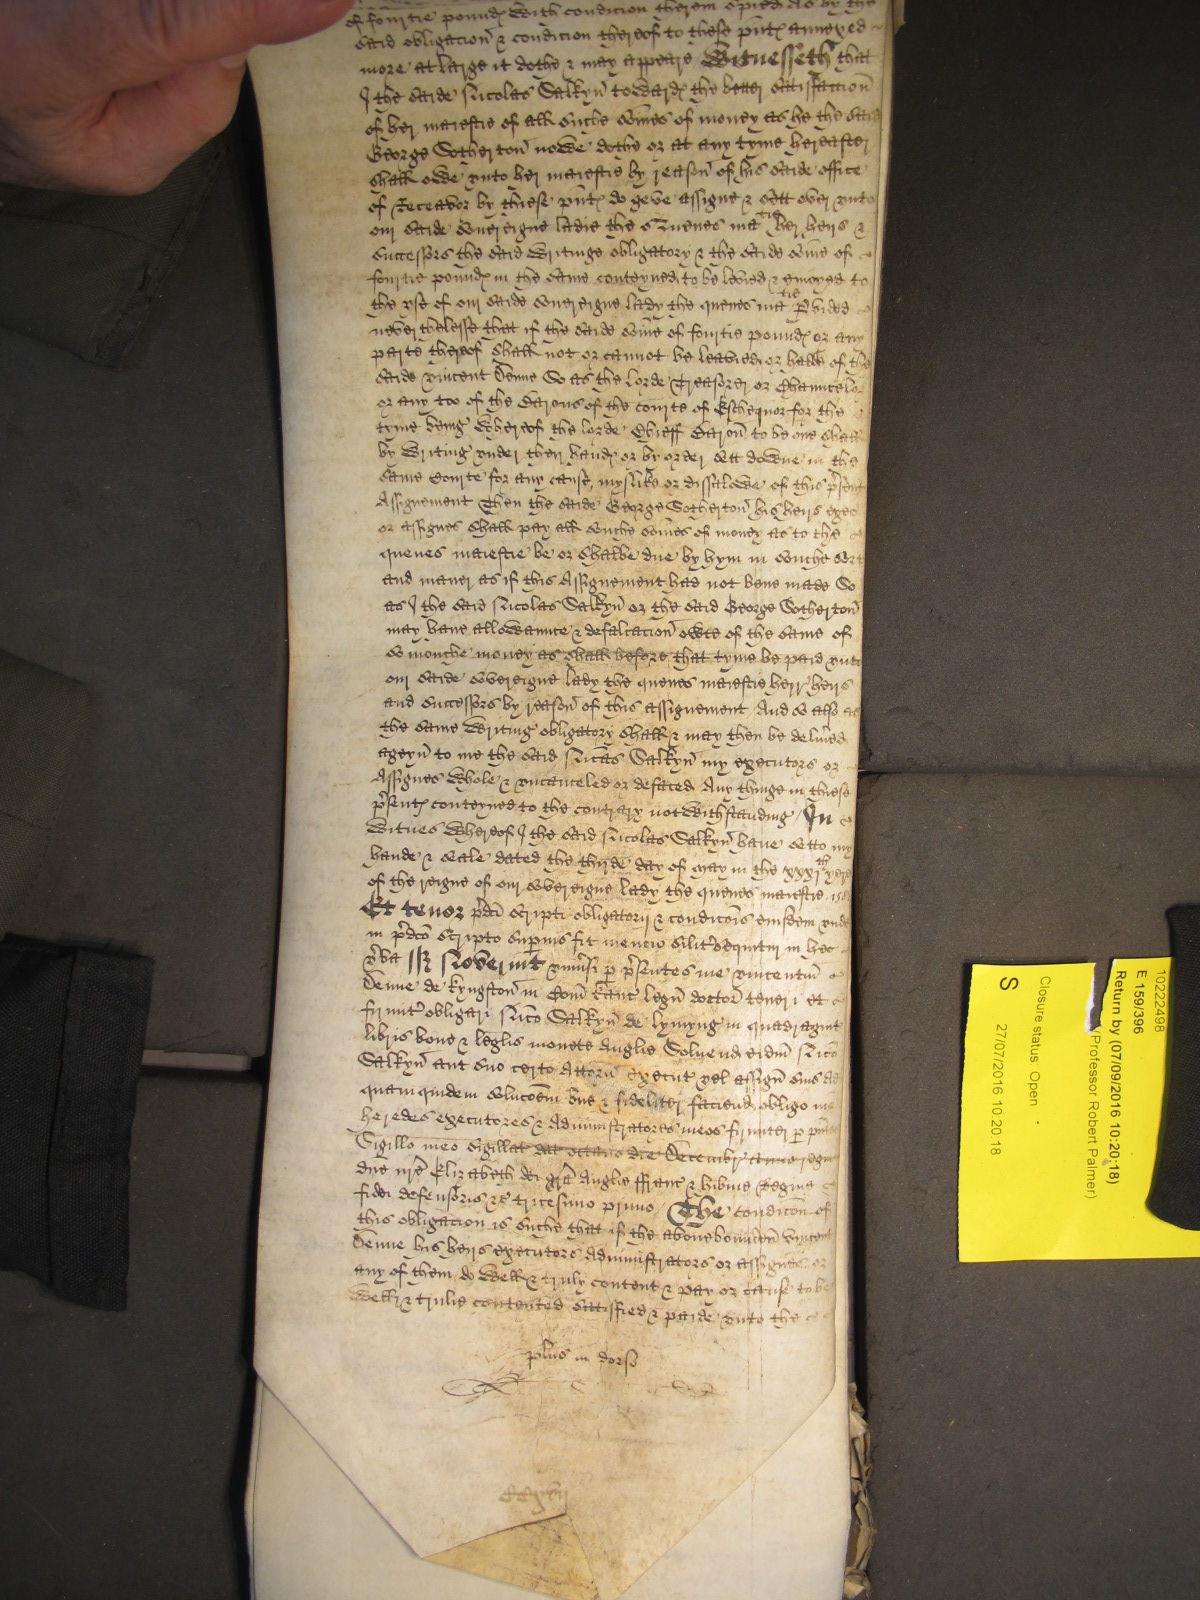 of fourtie pound? with condition therein as by the
said obligacion & condition thereof to these pñt? annexed
more at large it dothe & may appeare Witnesseth that
I the saide Nicolas Salkyn toward? the better satisfaccion
of her maiestie of all suche somes of money as he the said
George Sotherton nowe dothe or at any tyme hereafter
shall owe vnto her maiestie by reason of his saide office
of Receavor by these pñt? do geve assigne & sett over vnto
our saide souereigne ladie the Quenes matie her heirs &
successors the said writinge obligatory & the saide some of
fourtie pound? in the same conteyned to be levied & to
the vse of our saide souereigne lady the quenes matie Provided
neverthelesse that if the saide some of fourtie pound? or any
parte thereof shall not or cannot be leavied or hadd of the
saide vincent Denne So as the lorde Treasorer or Chauncelor
or any too of the Barons of the courte of Eschequor for the
tyme being wherof the lorde Chieff Baron to be one shall
by writing vnder their hand? or by order sett downe in the
same courte for any cause, myslike or dissalowe of this pñsent
Assignement Then the saide George Sotherton his heirs
or assignes shall pay all suche somes of money as to the
quenes maiestie be or shalbe due by hym in suche sort
and maner as if this Assignement had not bene made So
as I the said Nicolas Salkyn or the said George Sotherton
may haue allowaunce & defalcacion owte of the same of
so mouche money as shall before that tyme be paid vnto
our saide souereigne lady the quenes maiestie herr heirs
and successors by reason of this assignement And so also as
the same writing obligatory shall & may then be deliued
ageyn to me the said Nicas Salkyn my executors or
Assignes whole & vncanceled or defaced Any thinge in these
pñsent? conteyned to the contrary notwithstanding In
witnes whereof I the said Nicolas Salkyn haue sett to my
hande & seale dated the thirde day of may in the xxxith yere
of the reigne of our souereigne lady the quenes maiestie
Et tenor pdci scripti obligatorii & condicois eiusdem vnde
in pdco scripto superius fit mencio silit sequitur in hec
vba ss Noverint vniusi p psentes me vincentiu
Denne de Kyngston in Com Kanc legu doctor teneri et
firmit obligari Nico Salkyn de lymyng in quadragint
libris bone & leglis monete Anglie Soluend eidm Nico
Salkyn aut suo certo Attorn executr vel assign suis Ad
quam quidem soluconem bñe & fideliter faciend obligo me
heredes executores & Administratores meos firmiter p pñtes
Sigillo meo sigillat dat octavo die Decembr anno regni
dne nre Elizabeth dei gra Anglie ffranc & hibnie Regine
fidei defensoris &c tricesimo primo The condicon of
this obligacion is suche that if the abovebounden vincent
Denne his heirs executors Administrators or assignes or
any of them do well & truly content & pay or cause to be
well & trulie contented satisfied & paide vnto the
plus in dorso
10222498
E 159/396
Return by (07/09/2016 10:20:18)
(Professor Robert Palmer)
Closure status: Open
27/07/2016 10:20:18
S